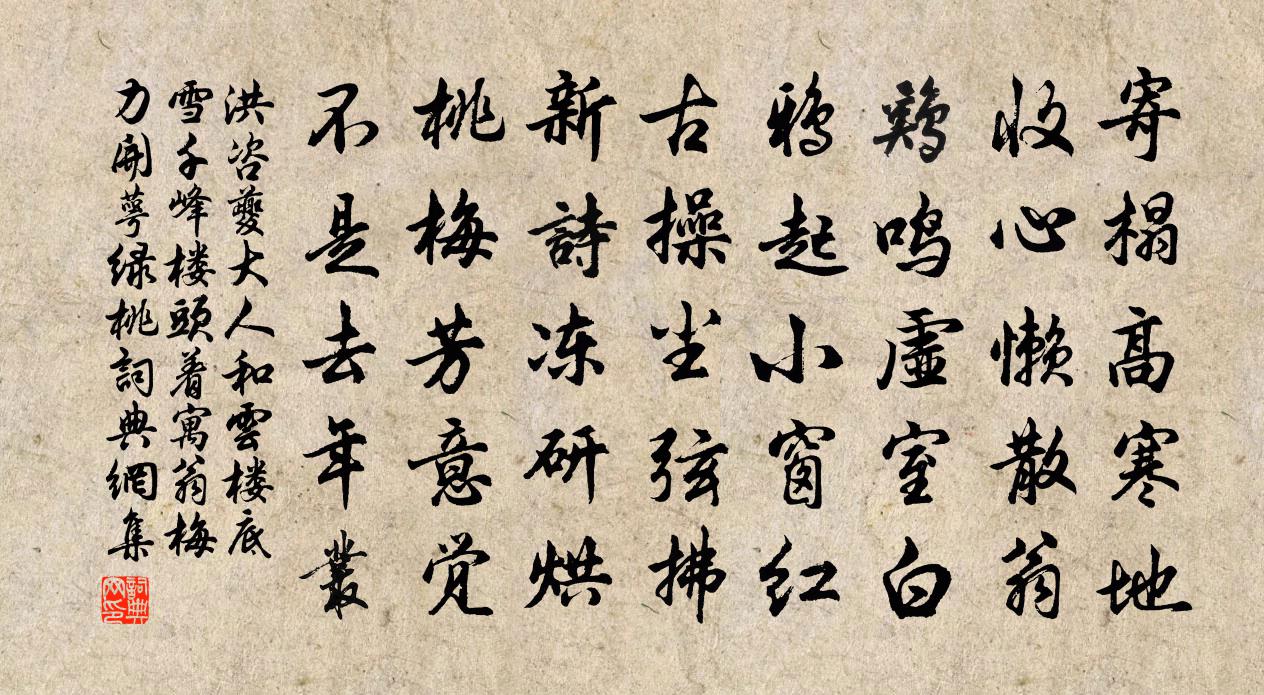 寄榻高寒地
收心懒散翁
鷄鸣虚室白
鸦起小窗红
古操尘弦拂
新詩冻研烘
桃梅芳意觉
不是去年叢
洪咨夔大人和雲楼底
雪千峰楼頭着寓翁梅
力開萼绿桃詞典網集
詞典网印